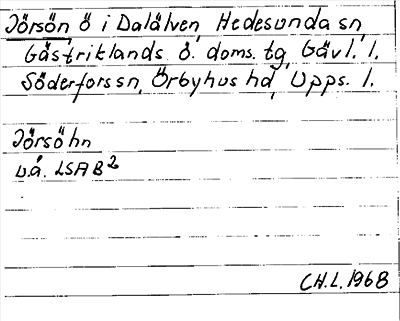 Jörsön ö i Dalälven, Hedesunda sn,
Gästriklands ö. doms. tg, Gävl. l.
Söderfors sn, Örbyhus hd, Upps. l.
Jörsöhn
u.å. LSA B2
CH.L. 1968